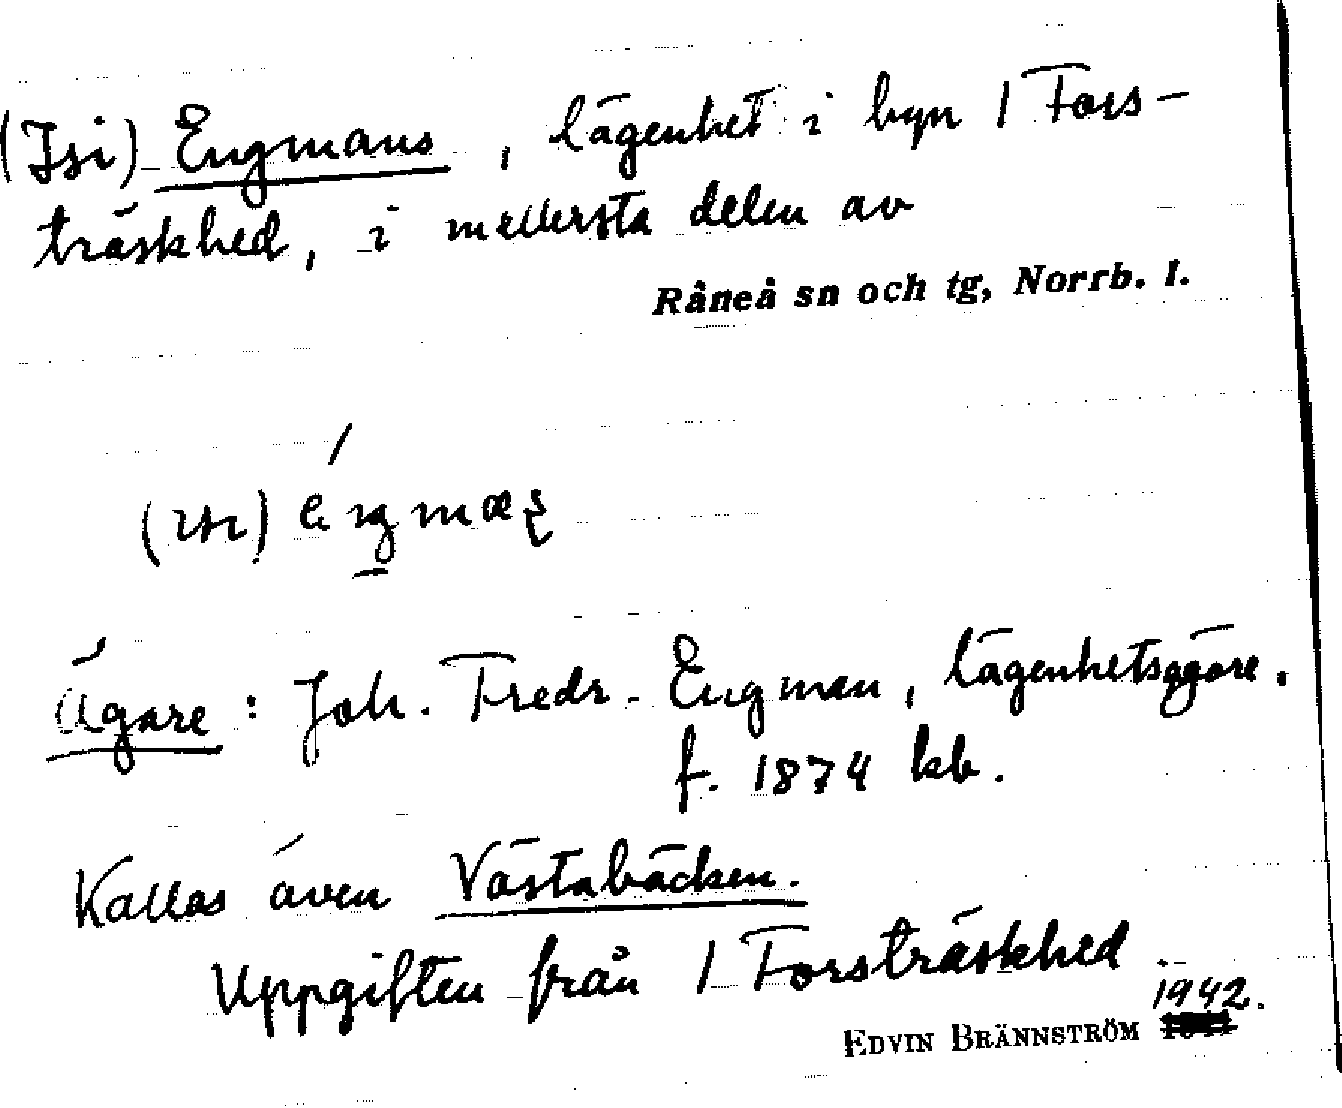 (Isi) Engmans, lägenhet i byn 1 Fors-
träskhed, i mellersta delen av
Råneå sn och tg, Norrb. l.
Ägare: Joh. Fredr. Engman, lägenhetsägare.
f. 1874 kb.
Kallas även Västabäcken.
Uppgiften från 1 Forsträskhed.
1942.
EDVIN BRÄNNSTRÖM